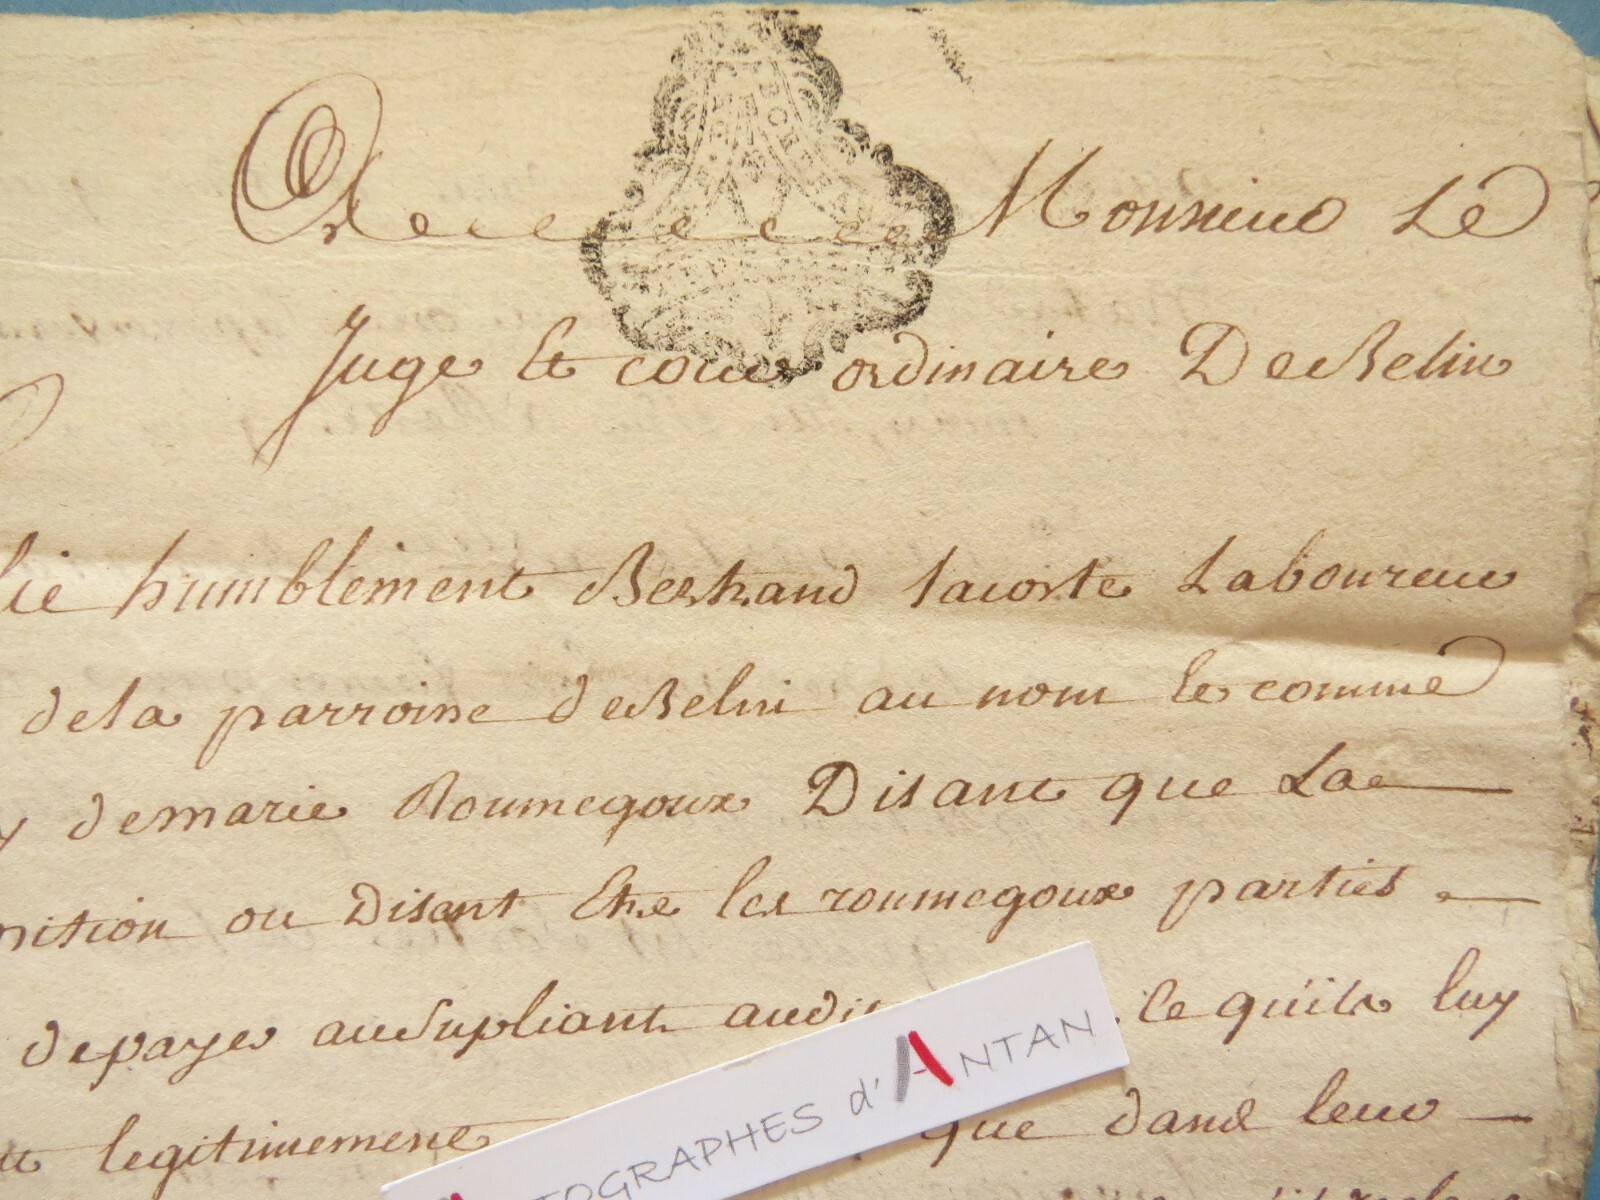 A Monsieur Le
Juge Et cour ordinaire De Belin
lie humblement Bertrand Lacoste Laboureur
de la parroisse de Belin au nom Et comme
y de marie Roumegoux Disant que La
sition ou Disent Etre les roumegoux parties
de payer au Supliant audi ce qu'ils luy
legitimement que dans leur
TOGRAPHES d'ANTAN